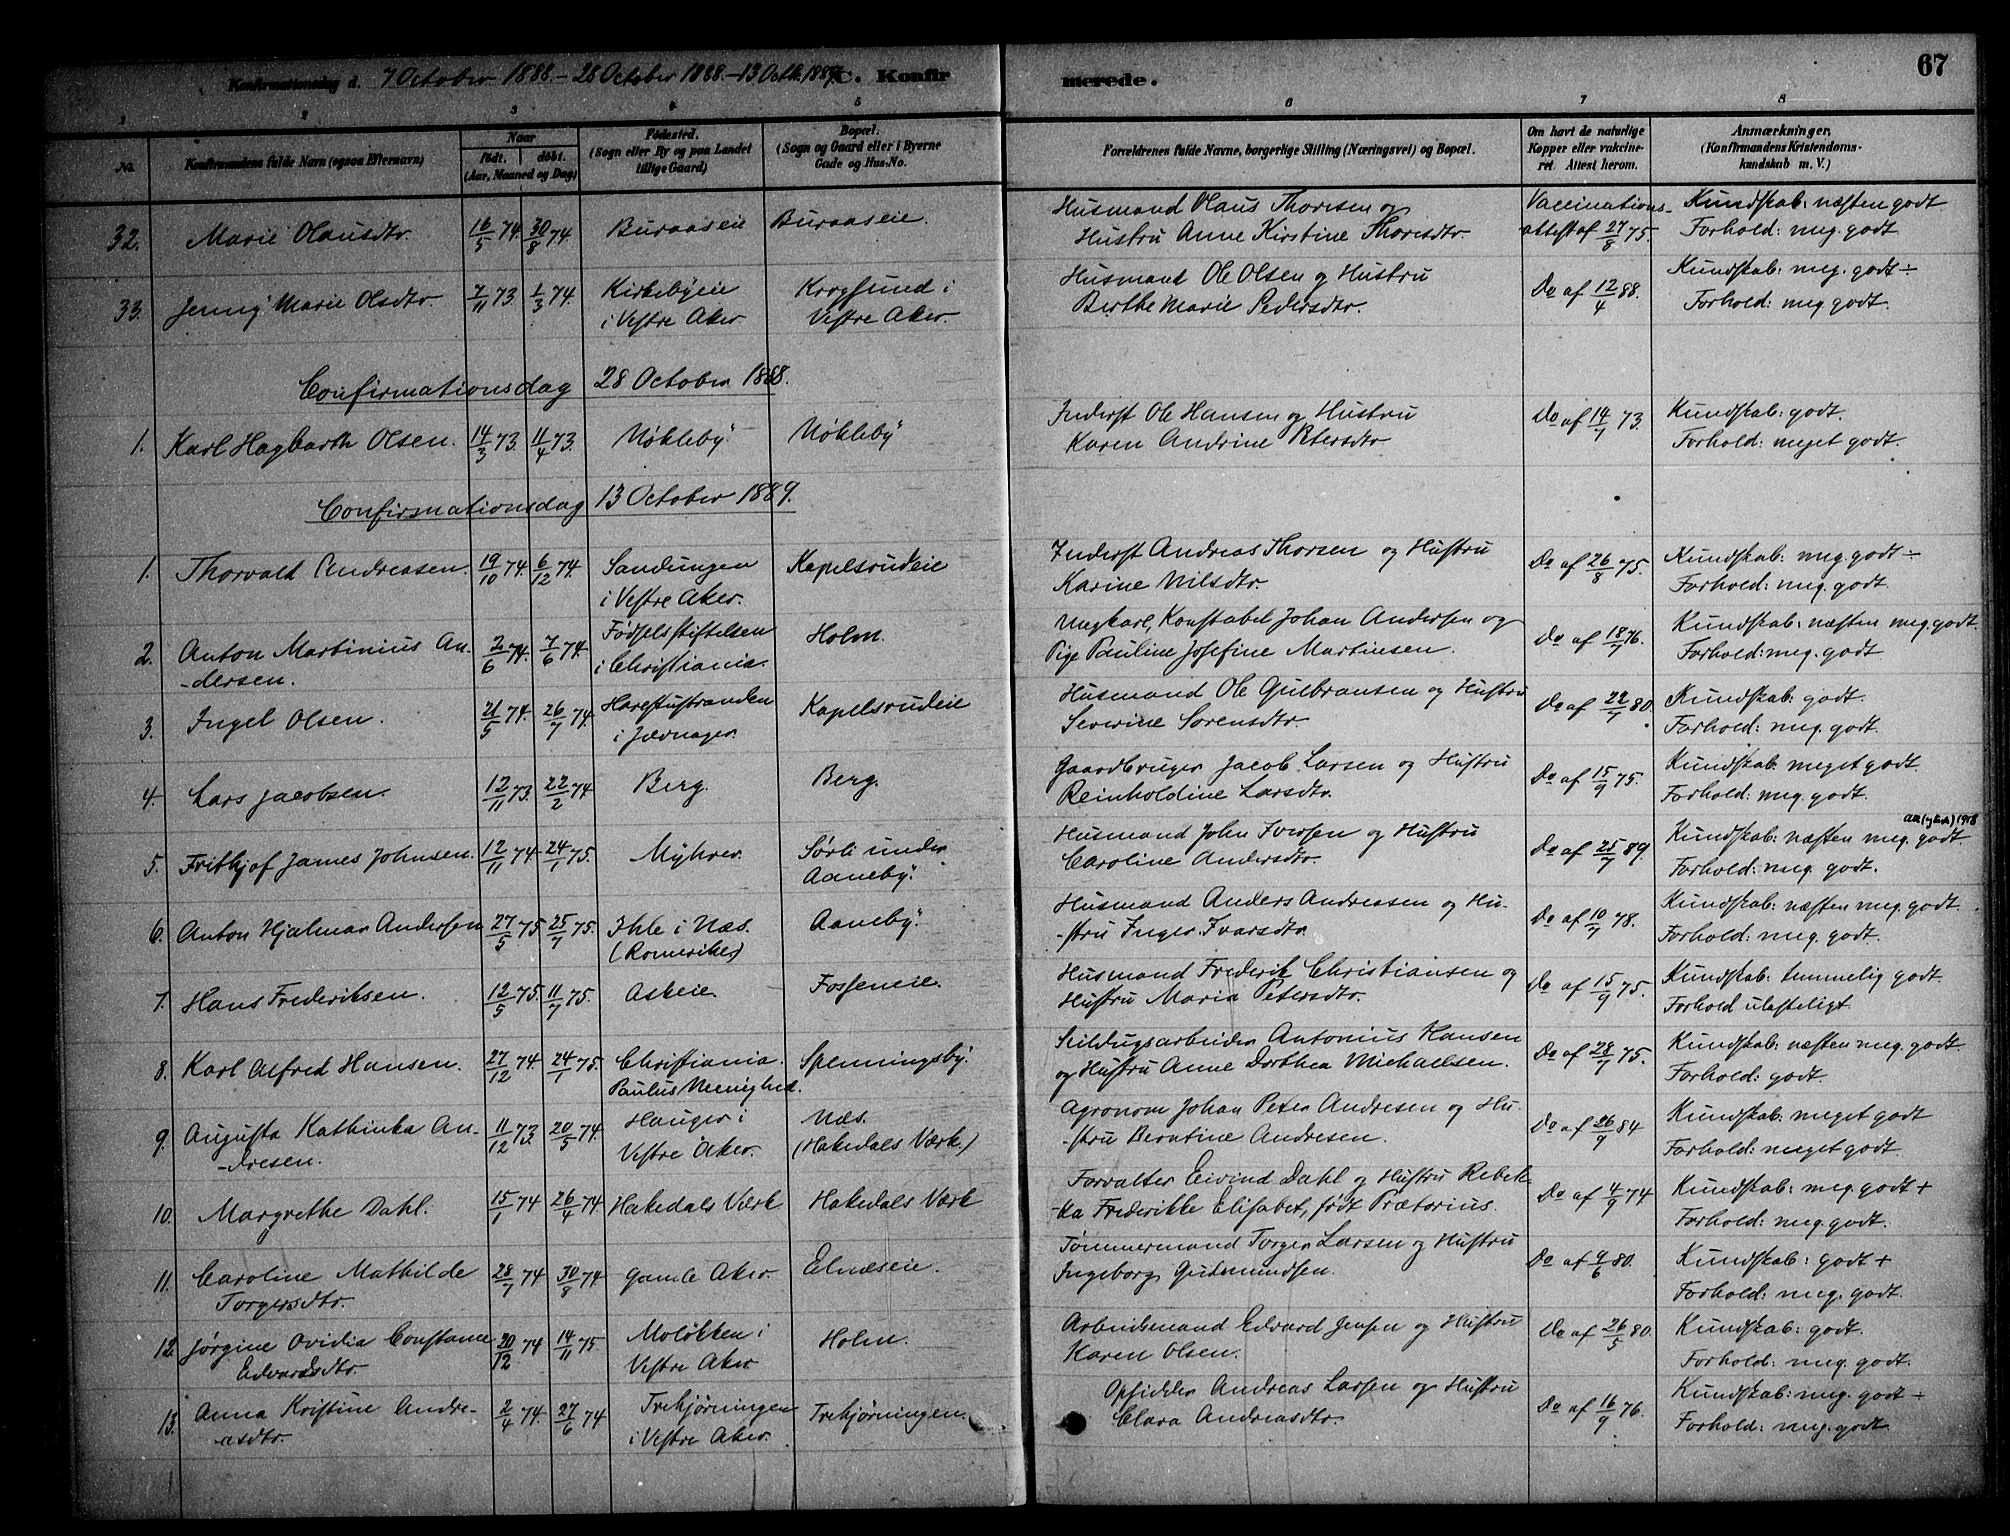 Konfirmationsdag d. 7 October 1888. - 28 October 1888. - 13 Octb. 1889. C. Konfir merede. 67
1 2 3 4 5 6 7 8
No. Konfirmandens fulde Navn (ogsaa Efternavn) Naar født. døbt. (Aar, Maaned og Dag) Fødested. (Sogn eller By og paa Landet tillige Gaard) Bopæl. (Sogn og Gaard eller i Byerne Gade og Hus-No. Forældrenes fulde Navne, borgerlige Stilling (Næringsvei) og Bopæl. Om havt de naturlige Kopper eller vakcineret. Attest herom. Anmærkninger. (Konfirmandens Kristendomskundskab m. V.)
32. Marie Olausdtr. 16/5 74. 30/8 74. Buraaseie Buraaseie. Husmand Olaus Thoresen og Vaccinations- Kundskab: næsten godt
Hustru Anne Kirstine Thoresdtr. attest af 27/8 75. Forhold: meg. godt
33. Jenny Marie Olsdtr 7/11 73. 1/3 74. Kirkebyeie Korgsund i Husmand Ole Olsen og Hustru Do af 12/4 88. Kundskab: meg. godt ÷
i Vestre Aker. Vestre Aker. Berthe Marie Pedersdtr. Forhold: meg godt.
Confirmationsdag 28 October 1888.
1. Karl Hagbarth Olsen. 14/3 73. 11/4 73. Nökleby Nökleby Inderst Ole Hansen og Hustru Do af 14/7 73. Kundskab: godt.
Karen Andrine Petersdtr Forhold: meget godt.
Confirmationsdag 13 October 1889.
1. Thorvald Andreasen. 19/10 74. 6/12 74. Sandungen Kapelsrudeie Inderst Andreas Thorsen og Hustru Do af 26/8 75. Kundskab: meg. godt ÷
i Vestre Aker. Karine Nilsdtr. Forhold: meg. godt.
2. Anton Martinius An- 2/6 74. 7/6 74. Fødselsstiftelsen Holm. Ungkarl, Konstabel Johan Andersen og Do af 18/7 76. Kundskab: næsten meg. godt
-dersen. i Christiania. Pige Pauline Josefine Martinsen. Forhold: meg. godt
3. Ingel Olsen. 21/5 74. 26/7 74. Harestustranden Kapelsrudeie Husmand Ole Gulbransen og Hustru Do af 22/7 80. Kundskab: godt.
i Jevnager. Severine Sorensdtr. Forhold: meg. godt.
4. Lars Jacobsen. 12/11 73. 22/2 74 Berg. Berg. Gaardbruger Jacob Larsen og Hustru Do af 15/9 75. Kundskab: meget godt.
Reinholdine Larsdtr. Forhold: meg. godt.
5. Frithjof James Johnsen. 12/11 74. 24/1 75. Myhrer. Sørli under Husmand John Iversen og Hustru Do af 25/7 89. Kundskab: næsten meg. godt
Aaneby. Caroline Andersdtr. Forhold: meg. godt.
6. Anton Hjalmar Andersen 27/5 75 25/7 75. Ihle i Næs. Aaneby. Husmand Anders Andreasen og Hu- Do af 10/7 78. Kundskab: næsten meg. godt
(Romerike) -stru Inger Ivarsdtr. Forhold: meg. godt.
7. Hans Frederiksen. 12/5 75. 11/7 75. Askeie. Fosseneie. Husmand Frederik Christiansen og Do af 15/9 75. Kundskab: temmelig godt.
Hustru Maria Petersdtr. Forhold ulasteligt.
8. Karl Alfred Hansen. 27/12 74. 24/1 75. Christiania. Spenningsby. Seildugsarbeider Antonius Hansen Do af 28/7 75. Kundskab: næsten meg. godt
Paulus Menighed. og Hustru Anne Dorthea Michaelsen. Forhold: godt.
9. Augusta Kathinka An- 11/12 73. 20/5 74. Hauger i Næs. Agronom Johan Peter Andresen og Hu- Do af 26/9 84 Kundskab: meget godt
-dresen. Vestre Aker. (Hakedals Værk.) -stru Berntine Andresen. Forhold: meget godt.
10. Margrethe Dahl. 15/1 74 26/4 74 Hakedals Værk Hakedals Værk Forvalter Eivind Dahl og Hustru Rebek- Do af 4/9 74 Kundskab: meg. godt +
-ka Frederikke Elisabet, født Prætorius. Forhold: meg. godt.
11. Caroline Mathilde 28/7 74 30/8 74. Gamle Aker. Elnæseie. Tømmermand Torger Larsen og Hustru Do af 9/6 80. Kundskab: godt +
Torgersdtr. Ingeborg Gudmundsen. Forhold: meg. godt.
12. Jørgine Ovidia Constance 20/12 74 14/11 75 Moløkken i Holm. Arbeidsmand Edvard Jensen og Hustru Do af 26/5 80. Kundskab: godt.
Edvardsdtr. Vestre Aker Karen Olsen. Forhold: meg. godt.
13. Anna Kristine Andre- 2/4 74. 27/6 74 Trehjørningen Trehjørningen. Opsidder Andreas Larsen og Hustru Do af 16/9 76. Kundskab: meg. godt ÷
-asdtr. i Vestre Aker. Clara Andreasdtr. Forhold: meg. godt